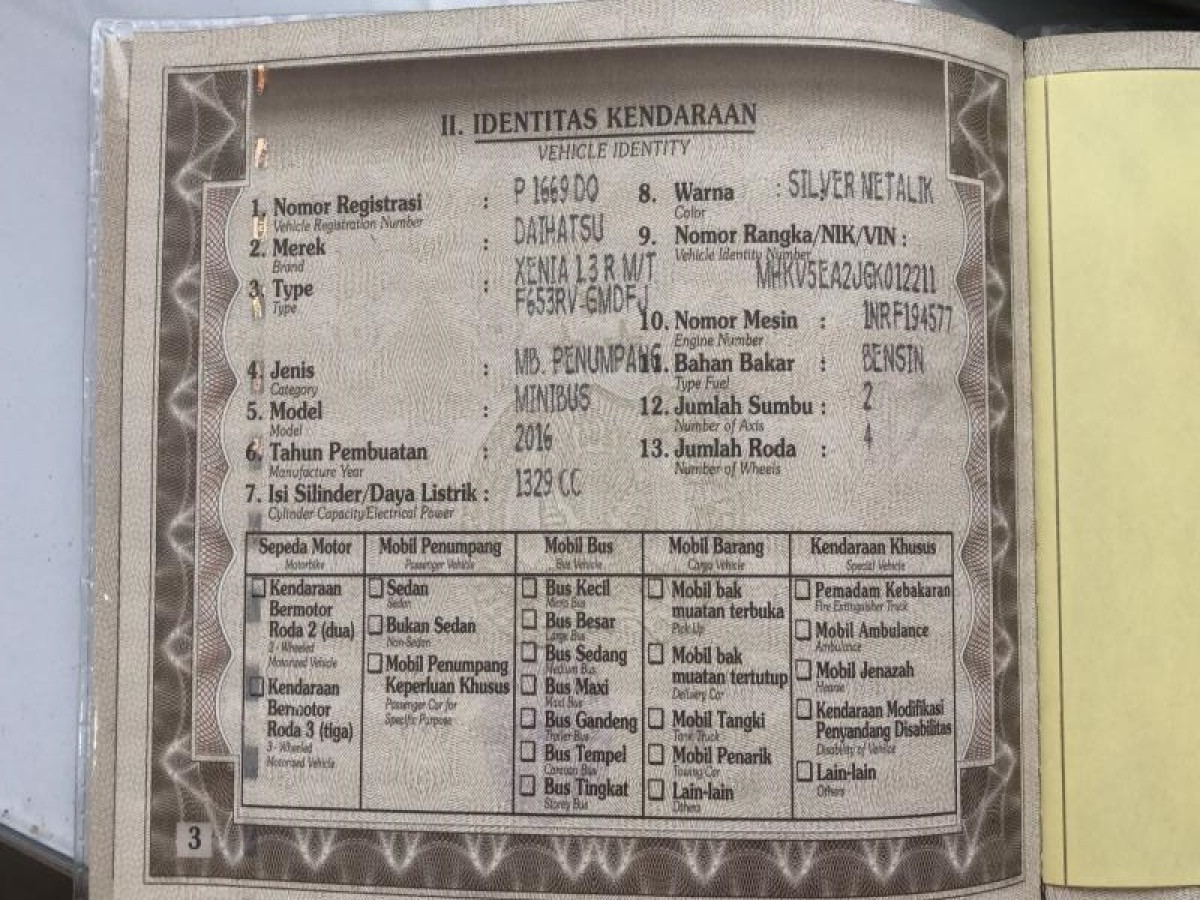 II. IDENTITAS KENDARAAN
VEHICLE IDENTITY
1. Nomor Registrasi : P 1669 DO
Vehicle Registration Number
2. Merek : DAIHATSU
Brand
3. Type : XENIA 1.3 R M/T
Type F653RV-GMDFJ
4. Jenis : MB. PENUMPANG
Category
5. Model : MINIBUS
Model
6. Tahun Pembuatan : 2016
Manufacture Year
7. Isi Silinder/Daya Listrik : 1329 CC
Cylinder Capacity/Electrical Power
8. Warna : SILVER METALIK
Color
9. Nomor Rangka/NIK/VIN :
Vehicle Identity Number
MHKV5EA2JGK012211
10. Nomor Mesin : 1NRF194577
Engine Number
11. Bahan Bakar : BENSIN
Type Fuel
12. Jumlah Sumbu : 2
Number of Axis
13. Jumlah Roda : 4
Number of Wheels
Sepeda Motor
Motorbike
Kendaraan
Bermotor
Roda 2 (dua)
2 - Wheeled
Motorized Vehicle
Kendaraan
Bermotor
Roda 3 (tiga)
3 - Wheeled
Motorized Vehicle
Mobil Penumpang
Passenger Vehicle
Sedan
Sedan
Bukan Sedan
Non-Sedan
Mobil Penumpang
Keperluan Khusus
Passenger Car for
Specific Purpose
Mobil Bus
Bus Vehicle
Bus Kecil
Micro Bus
Bus Besar
Large Bus
Bus Sedang
Medium Bus
Bus Maxi
Maxi Bus
Bus Gandeng
Trailer Bus
Bus Tempel
Caravan Bus
Bus Tingkat
Storey Bus
Mobil Barang
Cargo Vehicle
Mobil bak
muatan terbuka
Pick Up
Mobil bak
muatan tertutup
Delivery Car
Mobil Tangki
Tank Truck
Mobil Penarik
Towing Car
Lain-lain
Others
Kendaraan Khusus
Special Vehicle
Pemadam Kebakaran
Fire Extinguisher Truck
Mobil Ambulance
Ambulance
Mobil Jenazah
Hearse
Kendaraan Modifikasi
Penyandang Disabilitas
Disability of Vehicle
Lain-lain
Others
3